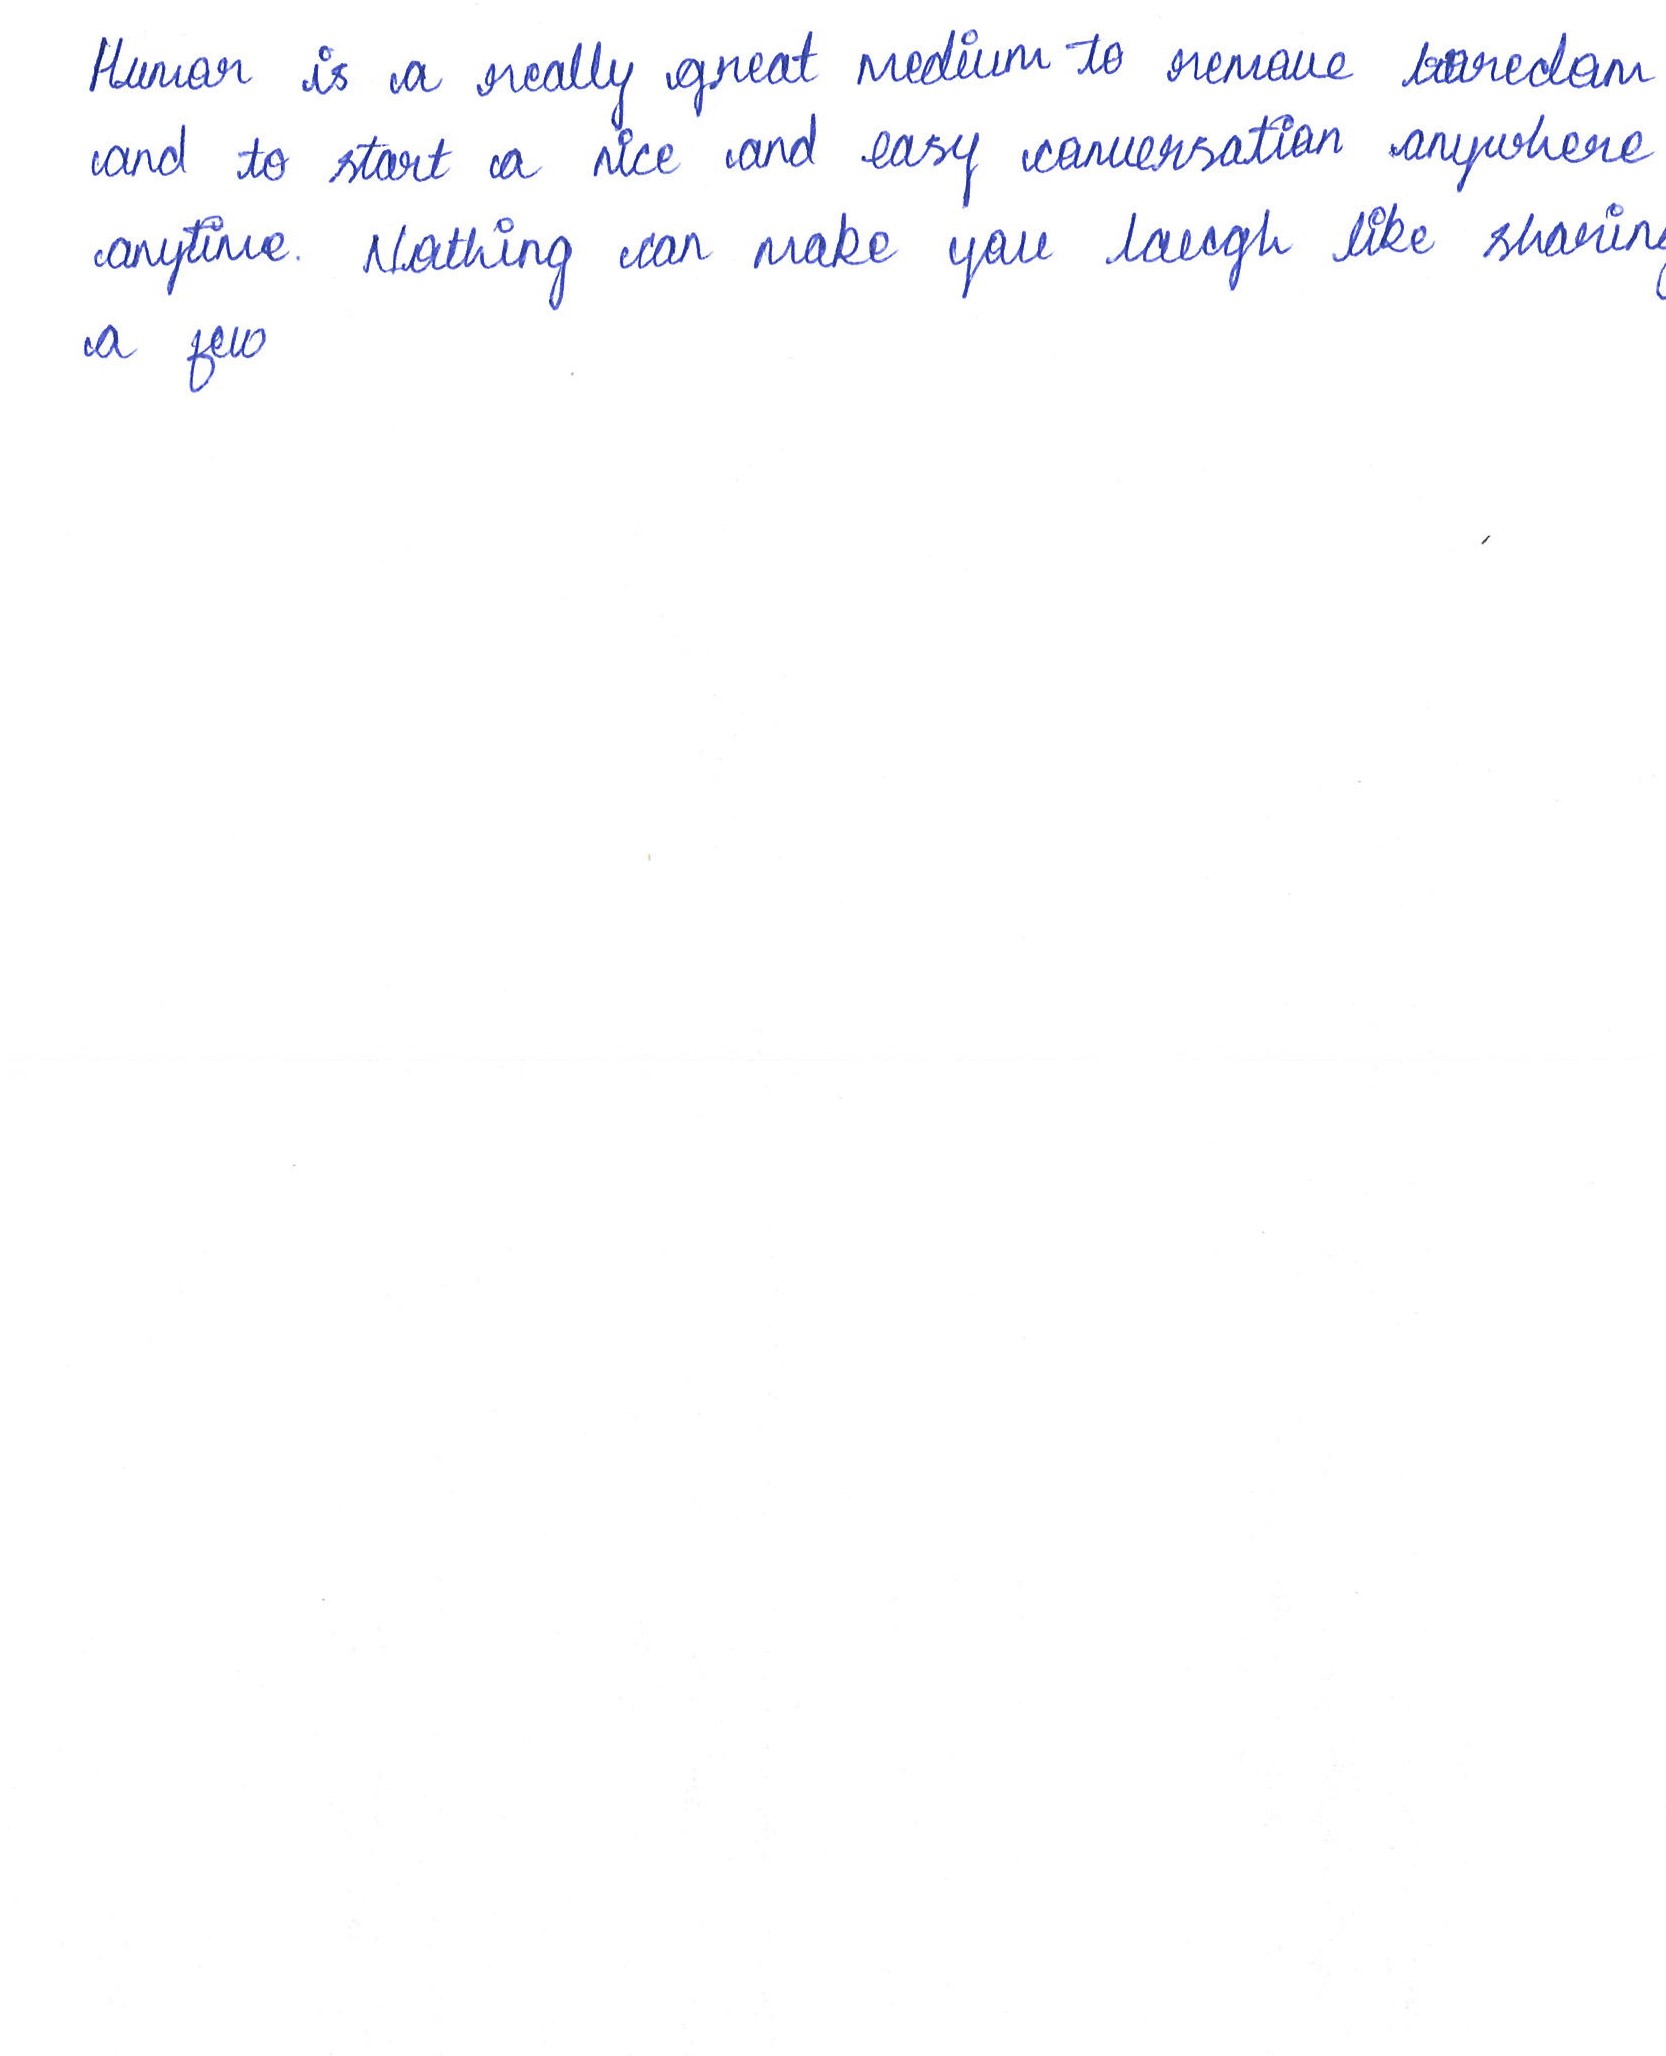 Humor is a really great medium to remove boredom
and to start a nice and easy conversation anywhere
anytime. Nothing can make you laugh like sharing
a few